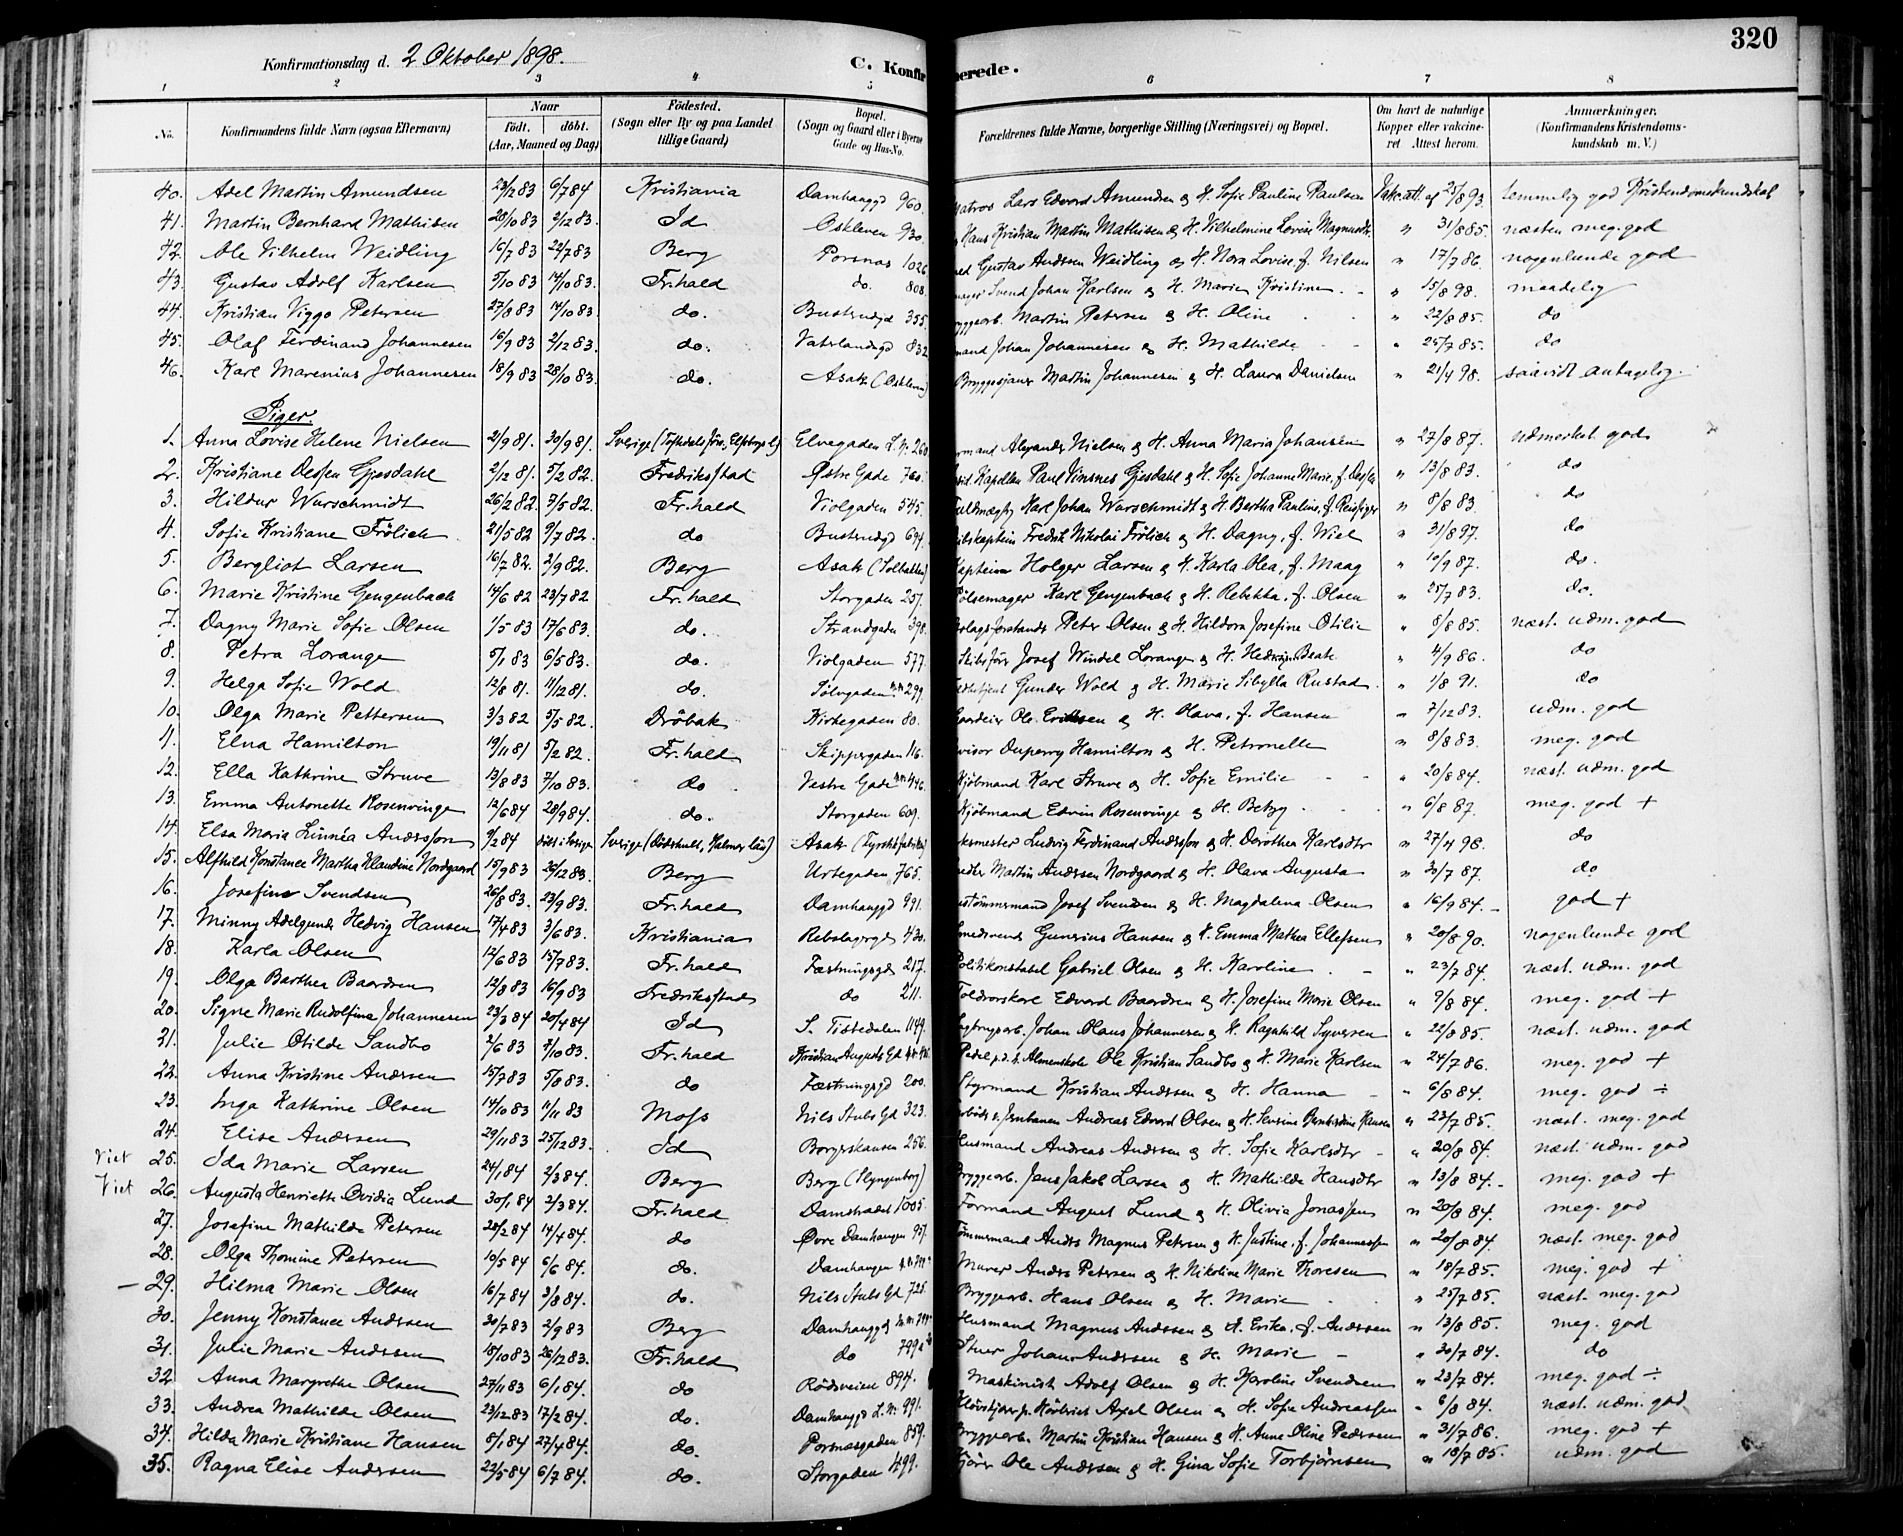 320
Konfirmationsdag d. 2 Oktober 1898. C. Konfir merede.
1 2 3 4 5 6 7 8
No. Konfirmandens fulde Navn (ogsaa Efternavn) Naar født. døbt. (Aar, Maaned og Dag) Fødested. (Sogn eller By og paa Landet tillige Gaard) Bopæl. (Sogn og Gaard eller i Byerne Gade og Hus-No. Forældrenes fulde Navne, borgerlige Stilling (Næringsvei) og Bopæl. Om havt de naturlige Kopper eller vakcineret Attest herom. Anmærkninger. (Konfirmandens Kristendomskundskab m. V.)
40. Adel Martin Amundsen 23/12 83 6/7 84 Kristiania Damhauggd 960. Matros Lars Edvard Amundsen & H. Sofie Pauline Paulsen Vakc.att. af 25/8 93. temmelig god Kristendomskundskab
41. Martin Bernhard Mathisen 20/10 83 2/12 83. Id Oskleven 930. Hans Kristian Martin Mathisen & H. Vilhelmine Lovise Magnusdtr. " 31/8 85. næsten meg. god
42. Ole Vilhelm Weidling 16/7 83 22/7 83 Berg Porsnæs 1026 Gustav Andersen Weidling & H. Nora Lovise, f. Nilsen " 17/7 86. nogenlunde god
43. Gustav Adolf Karlsen 5/10 83 14/10 83. Fr.hald do. 808. Svend Johan Karlsen & H. Marie Kristine " 15/8 98. maadelig
44. Kristian Viggo Petersen 27/8 83 14/10 83 do. Buskrudgd 355. Bryggearb. Martin Petersen & H. Oline " 22/8 85. do
45. Olaf Ferdinand Johannesen 16/9 83 2/12 83. do. Vaterlandsgd 832 Johan Johannesen & H. Mathilde " 25/7 85. do
46. Karl Marenius Johannesen 18/9 83 28/10 83. do. Asak (Oskleven) Bryggesjauer Martin Johannesen & H. Laura Danielsen " 21/4 98. saavidt antagelig.
Piger.
1. Anna Lovise Helene Nielsen 2/9 81. 30/9 81. Sverige (Tostedals , Elfsborgs l) Elvegaden L.N. 260 Alexander Nielsen & H. Anna Maria Johansen " 27/8 87. udmerket god
2. Kristiane Dessen Gjesdahl 2/12 81. 5/2 82. Fredriksstad Østre Gade 760. Kapellan Paul Vinsnes Gjesdahl & H. Sofie Johanne Marie, f. Dessen " 13/8 83. do
3. Hildur Wurschmidt 26/2 82. 7/5 82. Fr.hald Violgaden 545. Fuldmægtig Karl Johan Wurschmidt & H. Bertha Pauline, f. Reissiger " 8/8 83. do
4. Sofie Kristiane Frölich 21/5 82 9/7 82. do Buskrudgd 694. Skibskaptein Fredrik Nikolai Frölich & H. Dagny, f. Wiel " 31/8 97. do
5. Bergliot Larsen 16/7 82. 2/9 82. Berg Asak (Solbakken) Kaptein Holger Larsen & H. Karla Olea, f. Maag " 10/9 87. do.
6. Marie Kristine Gengenbach 14/6 82 23/7 82 Fr.hald Storgaden 257. Pølsemager Karl Gengenbach & H. Rebekka, f. Olsen " 25/7 83. do.
7. Dagny Marie Sofie Olsen 1/5 83 17/6 83. do. Strandgaden 398. Peter Olsen & H. Hildora Josefine Otilie " 8/8 85. næst. udm. god
8. Petra Lorange 5/1 83 6/5 83. do. Violgaden 577. Skibsfører Josef Windel Lorange & H. Hedvig Beate " 4/9 86. do
9. Helga Sofie Wold 12/8 81. 11/12 81. do. Sølvgaden 299. Gunder Wold & H. Marie Sibylla Rustad " 1/8 91. do
10. Olga Marie Pettersen 3/3 82 5/5 82. Drøbak Kirkegaden 80. Gaardeier Ole Eriksen & H. Olava, f. Hansen " 7/12 83. udm. god
11. Elna Hamilton 19/11 81 5/2 82. Fr.hald Skippergaden 116. Revisor Duperry Hamilton & H. Petronelle " 8/8 83. meg. god
12. Ella Kathrine Struve 13/8 83 7/10 83. do Vestre Gade 446. Kjøbmand Karl Struve & H. Sofie Emilie " 20/8 84. næst. udm. god
13. Emma Antonette Rosenvinge 12/6 84 28/9 84. do. Storgaden 609. Kjøbmand Edvin Rosenvinge & H. Betzy " 6/8 87. meg. god +
14. Elsa Maria Linnéa Andersson 9/2 84 døbt i Sverige Sverige (Dödehult, Kalmar län) Asak Ludvig Ferdinand Andersson & H. Dorothea Karlsdtr " 27/4 98. do
15. Alfhild Konstance Martha Klaudine Nordgaard 15/9 83 26/12 83. Berg Urtegaden 765. Martin Andersen Nordgaard & H. Olava Augusta " 30/7 87. do
16. Josefine Svendsen 26/8 83. 23/9 83. Fr.hald Damhauggd 991. Josef Svendsen & H. Magdalena Olsen " 16/9 84. god +
17. Minny Adelgunde Hedvig Hansen 17/4 83 3/6 83. Kristiania Rebslagergd 430. Smedsvend Gunerius Hansen & H. Emma Mathea Ellefsen " 20/8 90. nogenlunde god
18. Karla Olsen 12/6 83 15/7 83. Fr.hald Fæstningsgd 217. Politikonstabel Gabriel Olsen & H. Karoline " 23/7 84. næst. udm. god
19. Olga Barthea Baardsen 12/8 83 16/9 83 Fredriksstad do 211. Toldrorskarl Edvard Baardsen & H. Josefine Marie Olsen " 9/8 84. meg. god +
20. Signe Marie Rudolfine Johannesen 23/3 84 20/4 84 Id S. Tistedalen 1149. Sagbrugsarb. Johan Olaus Johannesen & H. Ragnhild Syversen " 22/8 85. næst. udm. god
21. Julie Otilde Sandbo 2/6 83 7/10 83. Fr.hald Kristian Augusts Gd Pedel v. d. h. Almenskole Ole Kristian Sandbo & H. Marie Karlsen " 24/7 86. meg. god +
22. Anna Kristine Andersen 15/7 83 5/8 83. do Fæstningsgd 200. Styrmand Kristian Andersen & H. Hanna " 6/8 84. meg. god ÷
23. Inga Kathrine Olsen 14/10 83 11/11 83 Moss Nils Stubs Gd 323. Arbeider v. Jernbanen Andreas Edvard Olsen & H. Severine Bernhardine Hansen " 23/7 85. næst. meg. god
24. Elise Andersen 29/11 83 25/12 83. Id Borgerskansen 256. Husmand Andreas Andersen & H. Sofie Karlsdtr " 20/8 84. næst. udm. god
Viet 25. Ida Marie Larsen 24/1 84 2/3 84. Berg Berg (Slyngenborg) Bryggearb. Jens Jakob Larsen & H. Mathilde Hansdtr " 13/8 84. meg. god +
Viet 26. Augusta Henriette Ovidia Lund 30/1 84 2/3 84. Fr.hald Damstrædet 1005. Formand August Lund & H. Olivia Jonassen " 20/8 84. meg. god
27. Josefine Mathilde Petersen 28/2 84 14/4 84. do Øvre Damhaugen 957. Tømmermand Anders Magnus Petersen & H. Justine, f. Johannessen " 20/8 84. næst. meg. god
28. Olga Thomine Petersen 10/5 84 6/6 84. do. Damhaugen Murer Anders Petersen & H. Nikoline Marie Thoresen " 18/7 85. meg. god +
— 29. Hilma Marie Olsen 16/7 84 3/8 84. do. Nils Stubs Gd 725. Bryggearb. Hans Olsen & H. Marie " 25/7 85. næst. meg. god
30. Jenny Konstance Andersen 30/7 83 2/9 83 Berg Damhauggd Husmand Magnus Andersen & H. Erika, f. Andersen " 13/8 85. meg. god
31. Julie Marie Andersen 18/10 83 26/12 83. Fr.hald do 799a Stuer Johan Andersen & H. Marie " 30/7 84. do
32. Anna Margrethe Olsen 27/11 83 6/1 84. do Rødsveien 894. Maskinist Adolf Olsen & H. Karoline Svendsen " 23/7 84. meg. god ÷
33. Andrea Mathilde Olsen 23/12 83 17/2 84. do. Damhauggd L.N. 991. Axel Olsen & H. Sofie Andreassen " 6/8 84. næst. udm. god
34. Hilda Marie Kristiane Hansen 8/1 84 27/4 84. do. Porsnæsgaden 859. Bryggearb. Martin Kristian Hansen & H. Anne Oline Pedersen " 31/7 86. meg. god +
35. Ragna Elise Andersen 22/5 84 6/7 84. do. Storgaden 499. Kjører Ole Andersen & H. Gina Sofie Torbjørnsen " 18/7 85. udm. god